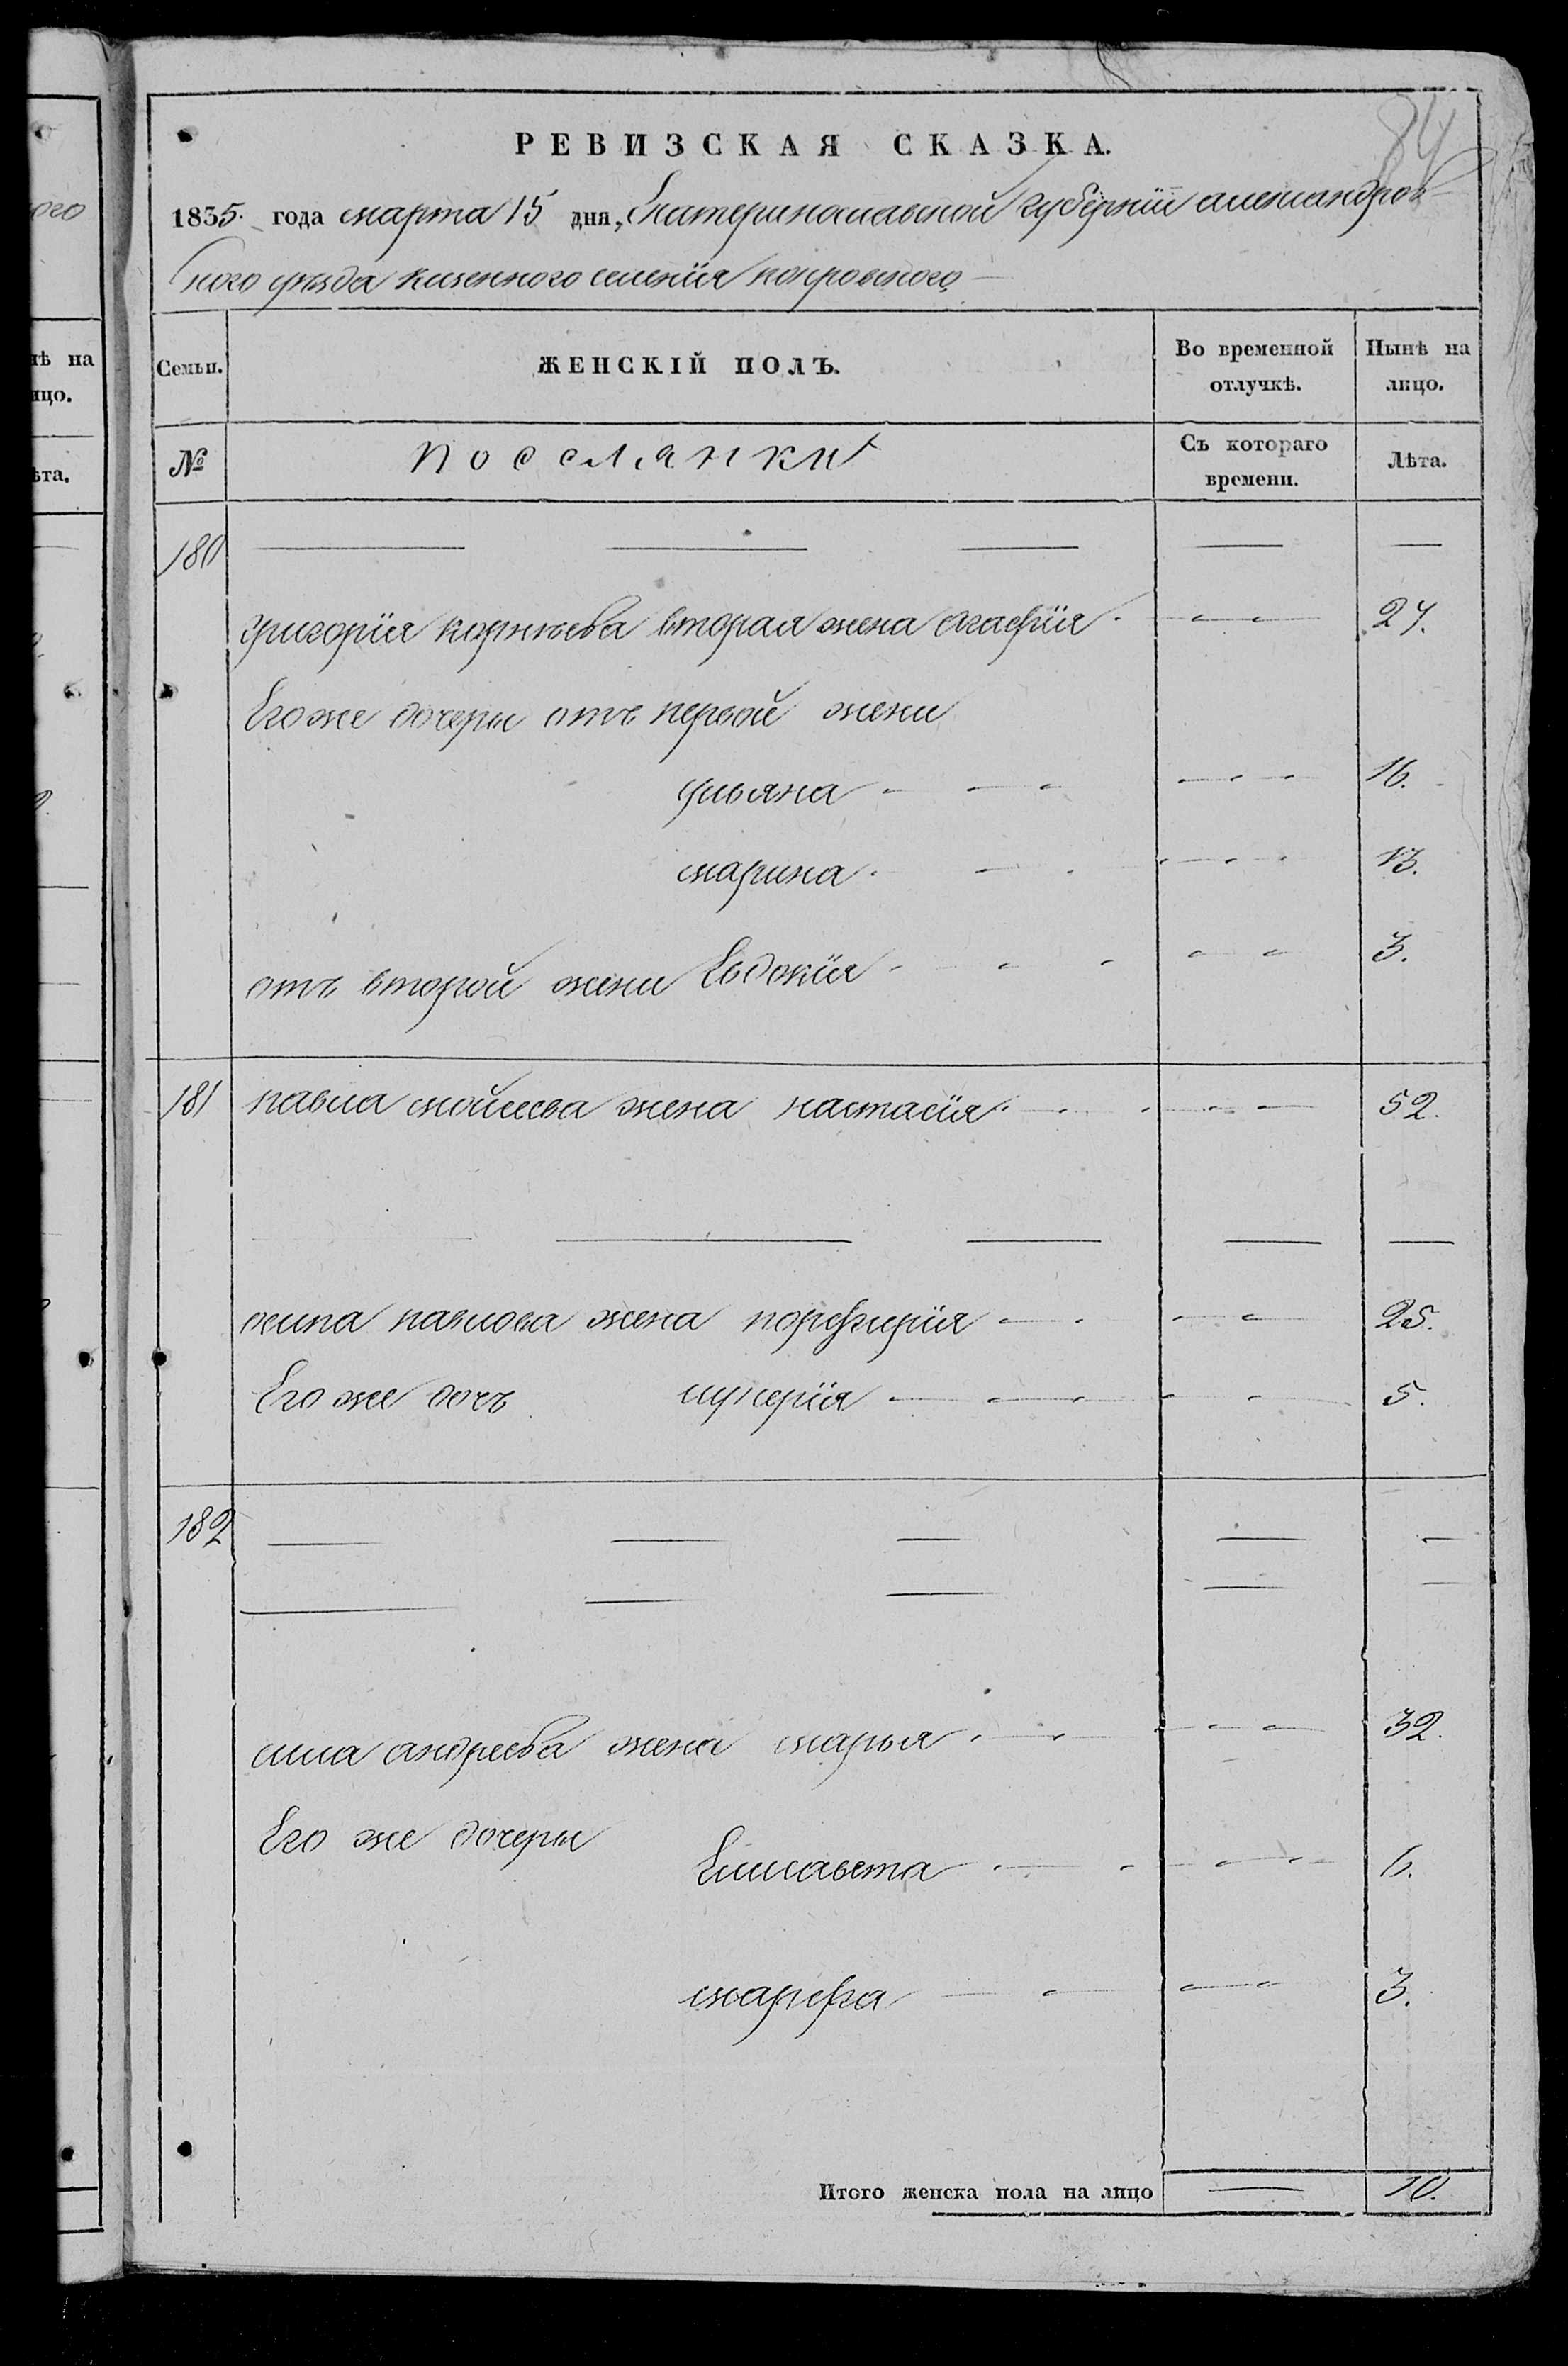 84
РЕВИЗСКАЯ СКАЗКА.
1835. года марта 15 дня, Екатеринославской губернїи александров
ского уѣзда казенного селенїя покровского
Семьи.
ЖЕНСКІЙ ПОЛЪ.
Во временной отлучкѣ.
Нынѣ на лицо.
№
поселянки
Съ котораго времени.
Лѣта.
180
григорїя корнѣева вторая жена агафїя 27.
Его же дочери отъ первой жени
ульяна 16.
марина 13.
отъ второй жени Евдокїя 3.
181 павла мойсеева жена настасїя 52.
осипа павлова жена порфирїя 25.
Его же дочь лукерїя 5.
182
сила андреева жена марья 32.
Его же дочери
Елисавета 6.
марфа 3.
Итого женска пола на лицо 10.